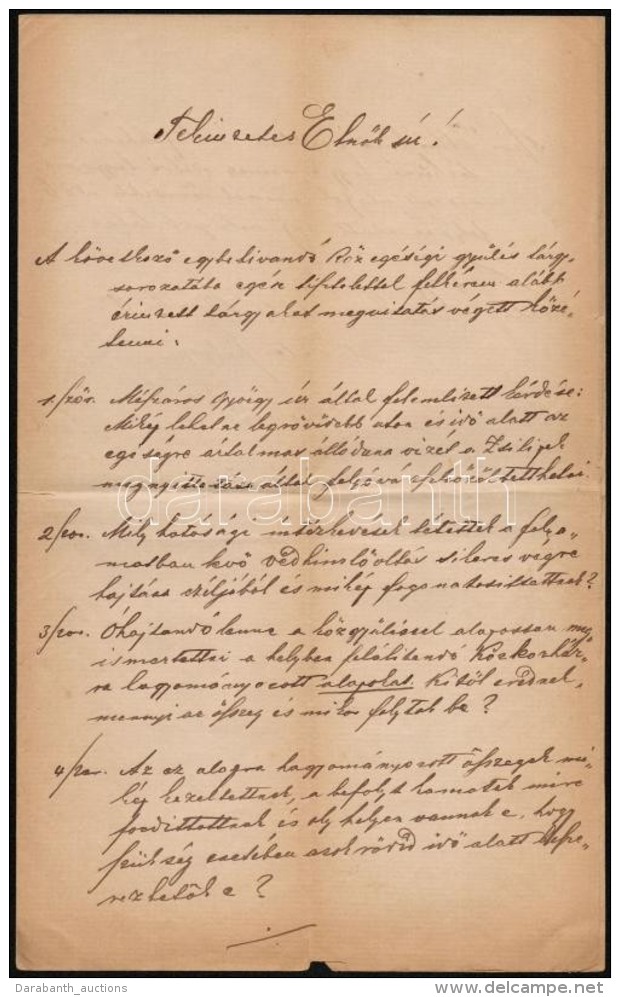 Tekintetes Elnök úr!
A következő egybehivandó Közegésségi gyülés tárgy-
sorozatába egész tisztelettel felkérem alább
érintett tárgyakat megvitatás végett közé-
tenni.
1./ször. Mészáros György úr által felemlitett kérdése:
Mikép lehetne legrövidebb uton és idő alatt az
egésségre ártalmas állóduna vizét a Zsilipek
megnyittatása által
2/szor. Mily hatósági intézkedések tétettek a folya-
matban levő védhimlőoltás sikeres végre
hajtása czéljából és mikép foganatosittattnak?
3/szor. Óhajtandó lenne a közgyüléssel alapossan meg
ismertettni a helyben felálitandó Közkorház-
ra hagyományozott alapokat. Kitől erednek,
mennyi az összeg és mikor folytak be?
4/szer. Az az alapra hagyományozott összegek mi-
kép kezeltettnek, a befolyt kamatok mire
fordittattnak és oly helyen vannak e, hogy
szükség esetében azok rövid idő alatt
e?
darabanth
Darabanth_auctions
www.delcampe.net